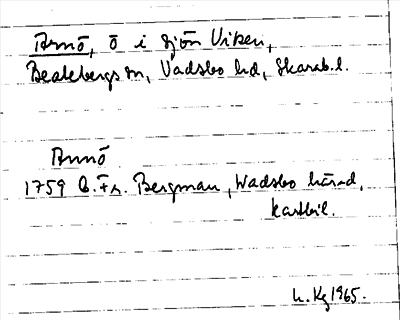 Arnö, ö i sjön Viken,
Beatebergs sn, Vadsbo hd, Skarab.l.
Arnnö
1759 C. Fr. Bergman, Wadsbo härad,
kartbil.
L. Kg 1965.